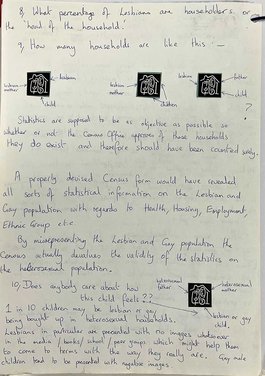 8, What percentage of Lesbians are householders or
the 'head of the household'.
9, How many households are like this :-
lesbian mother
lesbian
child
lesbian mother
children
lesbian
father
child
?
Statistics are supposed to be as objective as possible so
whether or not the Census Office approves of these households
they do exist and therefore should have been counted safely.
A properly devised Census form would have revealed
all sorts of statistical information on the Lesbian and
Gay population with regards to Health, Housing, Employment,
Ethnic Group etc.
By misrepresenting the Lesbian and Gay population the
Census actually devalues the validity of the statistics on
the heterosexual population.
10, Does anybody care about how
this child feels ??
heterosexual father
heterosexual mother
lesbian or gay child.
1 in 10 children may be lesbian or gay
being bought up in heterosexual households.
Lesbians in particular are presented with no images whatsoever
in the media / books / school / peer groups which might help them
to come to terms with the way they really are. Gay male
children tend to be presented with negative images.